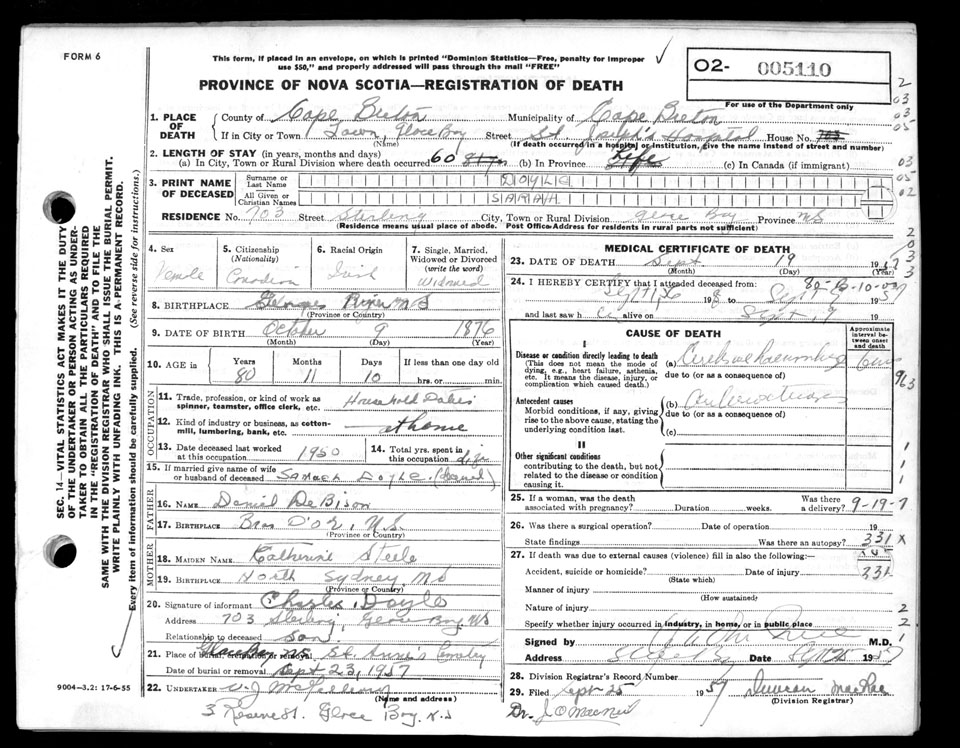 FORM 6
This form, if placed in an envelope, on which is printed "Dominion Statistics—Free, penalty for improper
use $50," and properly addressed will pass through the mail "FREE"
PROVINCE OF NOVA SCOTIA—REGISTRATION OF DEATH
02- 005110
For use of the Department only
1. PLACE OF DEATH
County of Cape Breton Municipality of Cape Breton
If in City or Town Town, Glace Bay Street St Joseph's Hospital House No. 703
(Name) (If death occurred in a hospital or institution, give the name instead of street and number)
2. LENGTH OF STAY (in years, months and days)
(a) In City, Town or Rural Division where death occurred 60 (b) In Province Life (c) In Canada (if immigrant)
3. PRINT NAME OF DECEASED
Surname or Last Name DOYLE
All Given or Christian Names SARAH
RESIDENCE No. 703 Street Sterling City, Town or Rural Division Glace Bay Province NS
(Residence means usual place of abode. Post Office Address for residents in rural parts not sufficient)
4. Sex Female
5. Citizenship (Nationality) Canadian
6. Racial Origin Irish
7. Single, Married, Widowed or Divorced (write the word) Widowed
8. BIRTHPLACE Georges River NS
(Province or Country)
9. DATE OF BIRTH October 9 1876
(Month) (Day) (Year)
10. AGE Years 80 Months 11 Days 10 If less than one day old hrs. or min.
OCCUPATION
11. Trade, profession, or kind of work as spinner, teamster, office clerk, etc. Household Duties
12. Kind of industry or business, as cotton-mill, lumbering, bank, etc. at home
13. Date deceased last worked at this occupation 1950
14. Total yrs. spent in this occupation
15. If married give name of wife or husband of deceased Doyle
FATHER
16. NAME Daniel
17. BIRTHPLACE Bras D'or, N.S.
(Province or Country)
MOTHER
18. MAIDEN NAME Catherine Steele
19. BIRTHPLACE North Sydney, NS
(Province or Country)
20. Signature of informant Charles Doyle
Address 703 Sterling, Glace Bay, NS
Relationship to deceased Son
21. Place of burial, cremation or removal Glace Bay NS St. Anne's
Date of burial or removal Sept 23, 1957
22. UNDERTAKER
(Name and address)
3 Reserve St. Glace Bay N.S
MEDICAL CERTIFICATE OF DEATH
23. DATE OF DEATH Sept 19 1957
(Month) (Day) (Year)
24. I HEREBY CERTIFY that I attended deceased from:
80-
and last saw h er alive on Sept.
CAUSE OF DEATH
Approximate interval between onset and death
I
Disease or condition directly leading to death
(This does not mean the mode of dying, e.g., heart failure, asthenia, etc. It means the disease, injury, or complication which caused death.)
(a) Cerebral
due to (or as a consequence of)
Antecedent causes
Morbid conditions, if any, giving rise to the above cause, stating the underlying condition last.
(b)
due to (or as a consequence of)
(c)
II
Other significant conditions
contributing to the death, but not related to the disease or condition causing it.
25. If a woman, was the death associated with pregnancy? Duration weeks. Was there a delivery? 9-19-7
26. Was there a surgical operation? Date of operation 19
State findings Was there an autopsy? 331 X
27. If death was due to external causes (violence) fill in also the following:—
Accident, suicide or homicide? Date of injury 331
(State which)
Manner of injury
(How sustained)
Nature of injury
Specify whether injury occurred in industry, in home, or in public place
Signed by M.D.
Address Date 1957
28. Division Registrar's Record Number
29. Filed Sept 25 1957 Duncan MacRae
(Division Registrar)
Dr. J O
SEC. 14—VITAL STATISTICS ACT MAKES IT THE DUTY
OF THE UNDERTAKER OR PERSON ACTING AS UNDER-
TAKER TO OBTAIN ALL THE PARTICULARS REQUIRED
IN THE "REGISTRATION OF DEATH" AND TO FILE THE
SAME WITH THE DIVISION REGISTRAR WHO SHALL ISSUE THE BURIAL PERMIT.
WRITE PLAINLY WITH UNFADING INK. THIS IS A PERMANENT RECORD.
Every item of information should be carefully supplied. (See reverse side for instructions.)
9004-3.2: 17-6-55